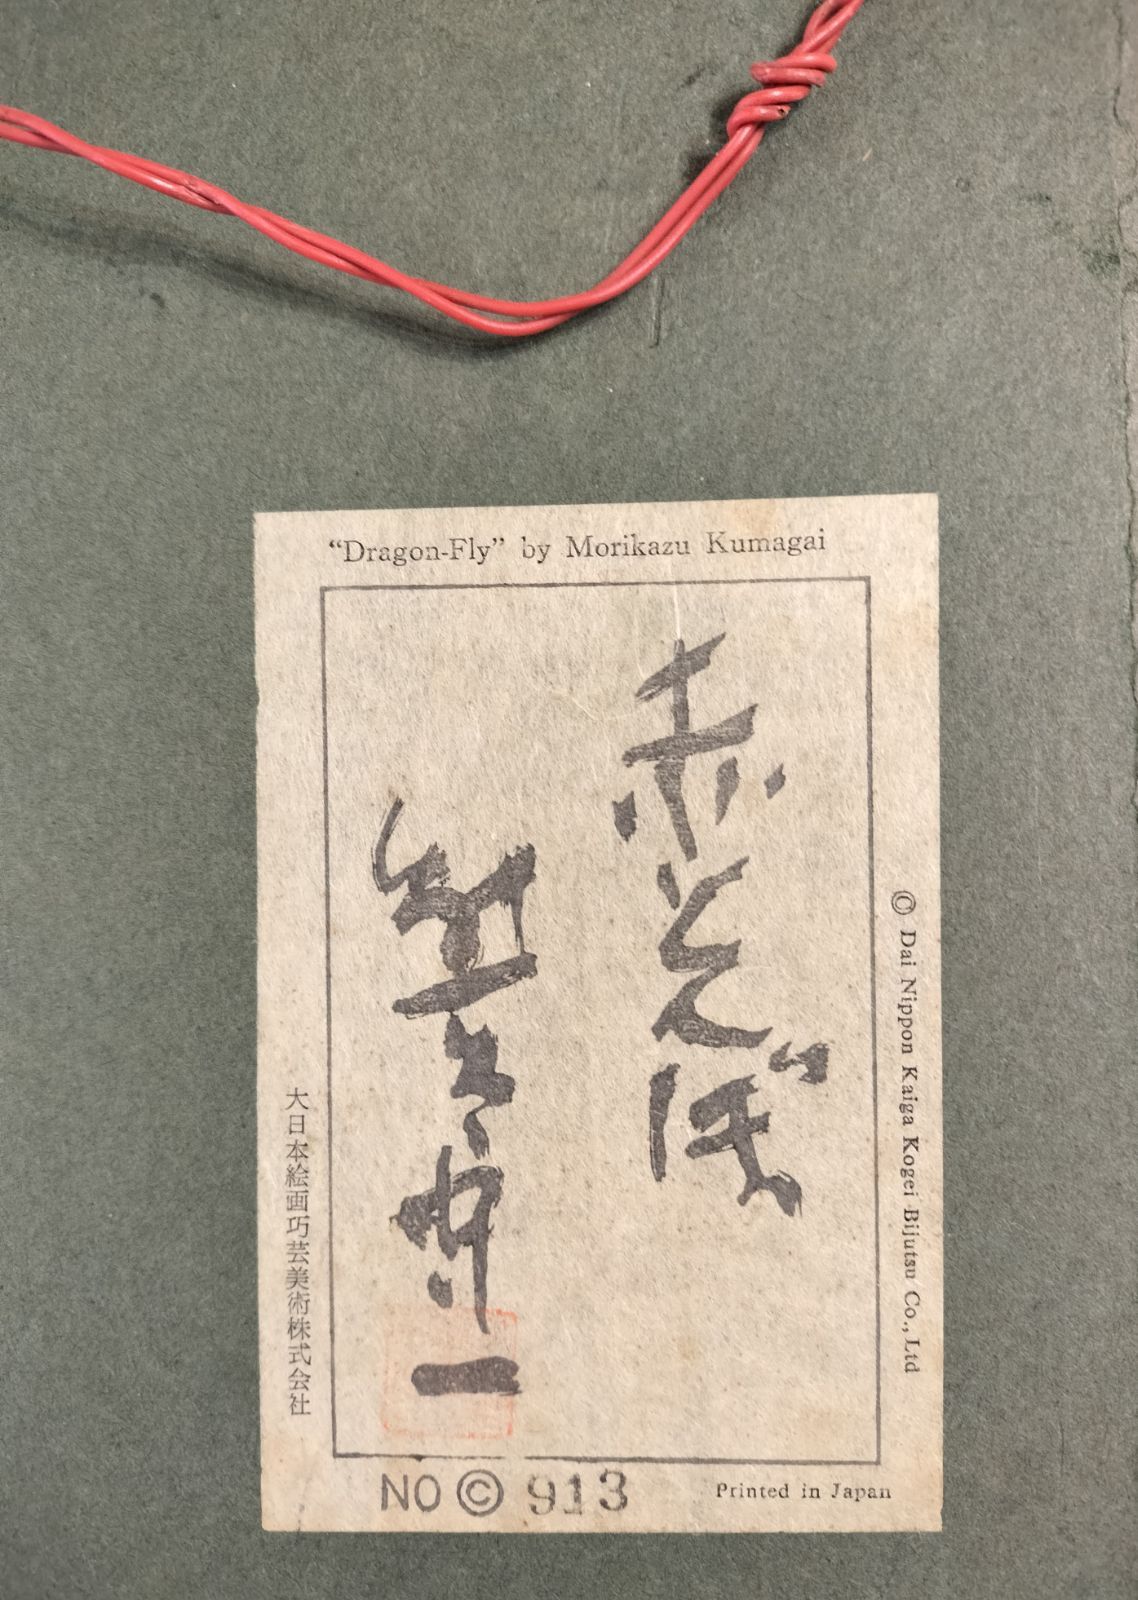 “Dragon-Fly” by Morikazu Kumagai
赤とんぼ
熊谷守一
© Dai Nippon Kaiga Kogei Bijutsu Co., Ltd
大日本絵画巧芸美術株式会社
NO © 913
Printed in Japan